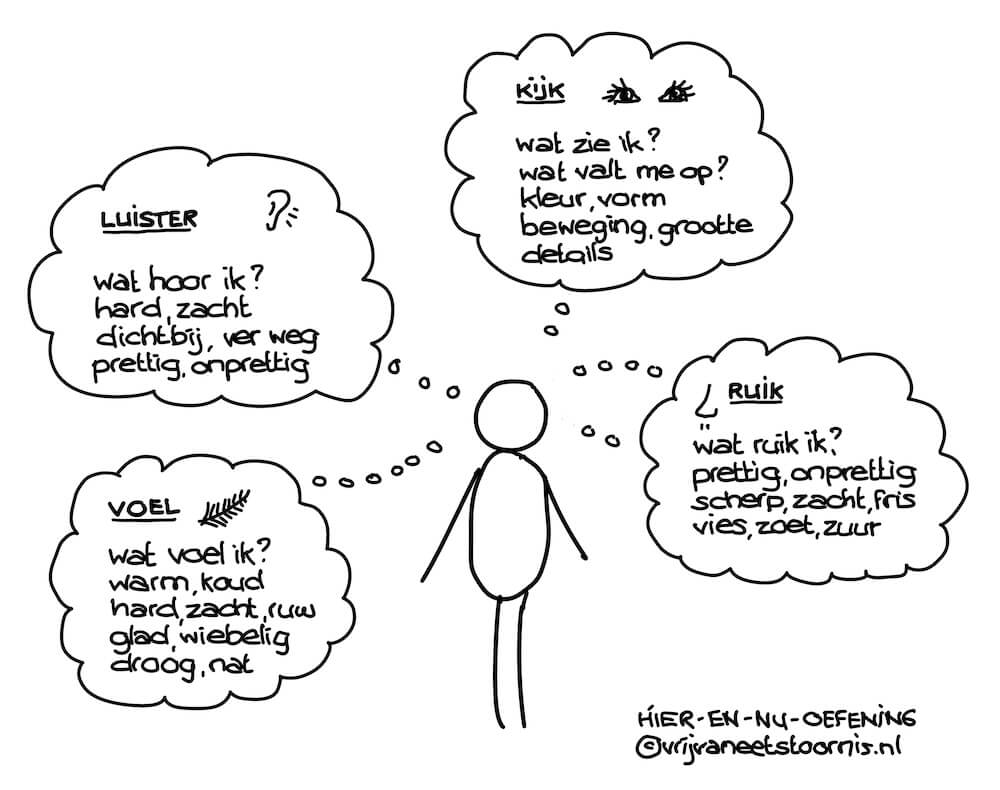 KIJK
wat zie ik?
wat valt me op?
kleur, vorm
beweging, grootte
details
LUISTER
wat hoor ik?
hard, zacht
dichtbij, ver weg
prettig, onprettig
RUIK
wat ruik ik?
prettig, onprettig
scherp, zacht, fris
vies, zoet, zuur
VOEL
wat voel ik?
warm, koud
hard, zacht, ruw
glad, wiebelig
droog, nat
HIER-EN-NU-OEFENING
©vrijvaneetstoornis.nl